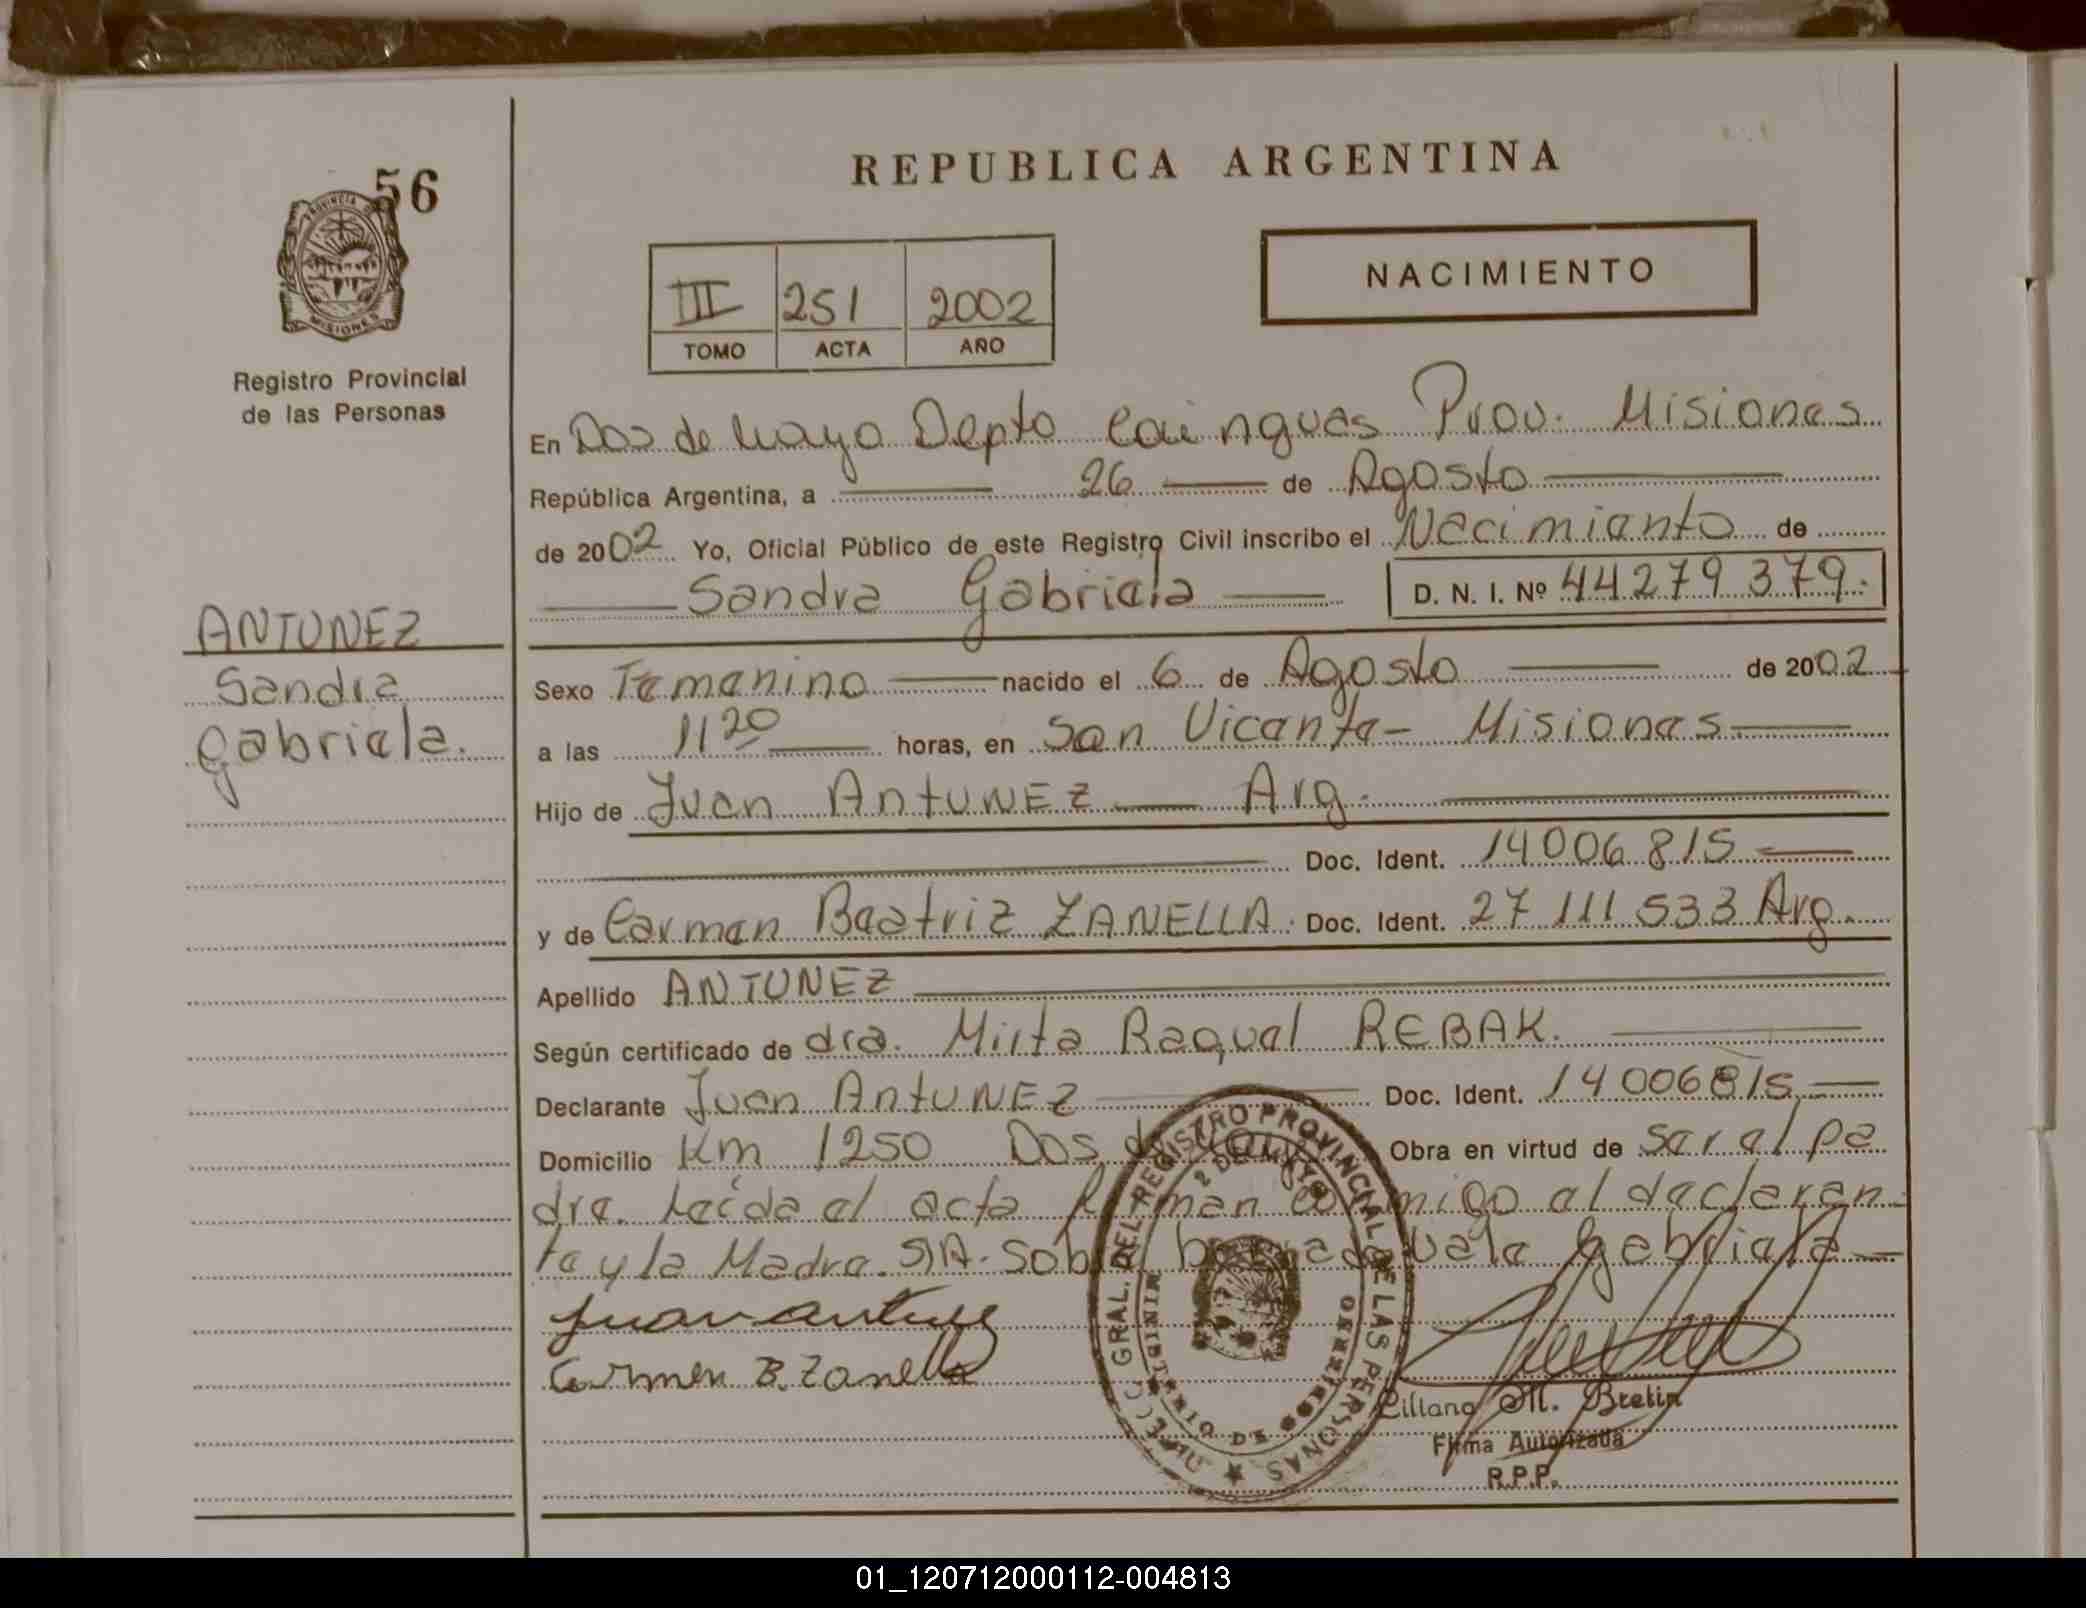 56
PROVINCIA DE
MISIONES
Registro Provincial
de las Personas
ANTUNEZ
Sandra
Gabriela.
REPUBLICA ARGENTINA
III 251 2002
TOMO ACTA AÑO
NACIMIENTO
En Dos de Mayo Depto Cainguas Prov. Misiones
República Argentina, a 26 de Agosto
de 2002 Yo, Oficial Público de este Registro Civil inscribo el Nacimiento de
Sandra Gabriela D. N. I. Nº 44279379.
Sexo Femenino nacido el 6 de Agosto de 2002
a las 11 20 horas, en San Vicente - Misiones
Hijo de Juan AntUNEZ Arg.
Doc. Ident. 14006815
y de Carmen Beatriz ZANELLA. Doc. Ident. 27 111 533 Arg.
Apellido ANTUNEZ
Según certificado de dra. Mirta Raquel REBAK.
Declarante Juan AntUNEZ Doc. Ident. 14006815
Domicilio Km 1250 Dos de Mayo Obra en virtud de ser el pa
dre. Leída el acta firman conmigo el declaran
te y la Madre. S/R. Sobre borrado vale Gabriela
Juan Antunez
Carmen B. Zanella
DIRECC. GRAL. DEL REGISTRO PROVINCIAL DE LAS PERSONAS
2 DE MAYO
MINISTERIO DE GOBIERNO
Liliana M. Brelin
Firma Autorizada
R.P.P.
01_120712000112-004813